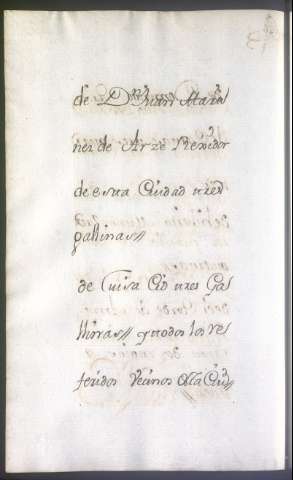 de Dn Juan Marti
nez de Arze Rexidor
de esta Ciudad tres
gallinas//
de Luisa Cid tres Gas
llinas// y todos los re
feridos Vecinos de la Ciud//